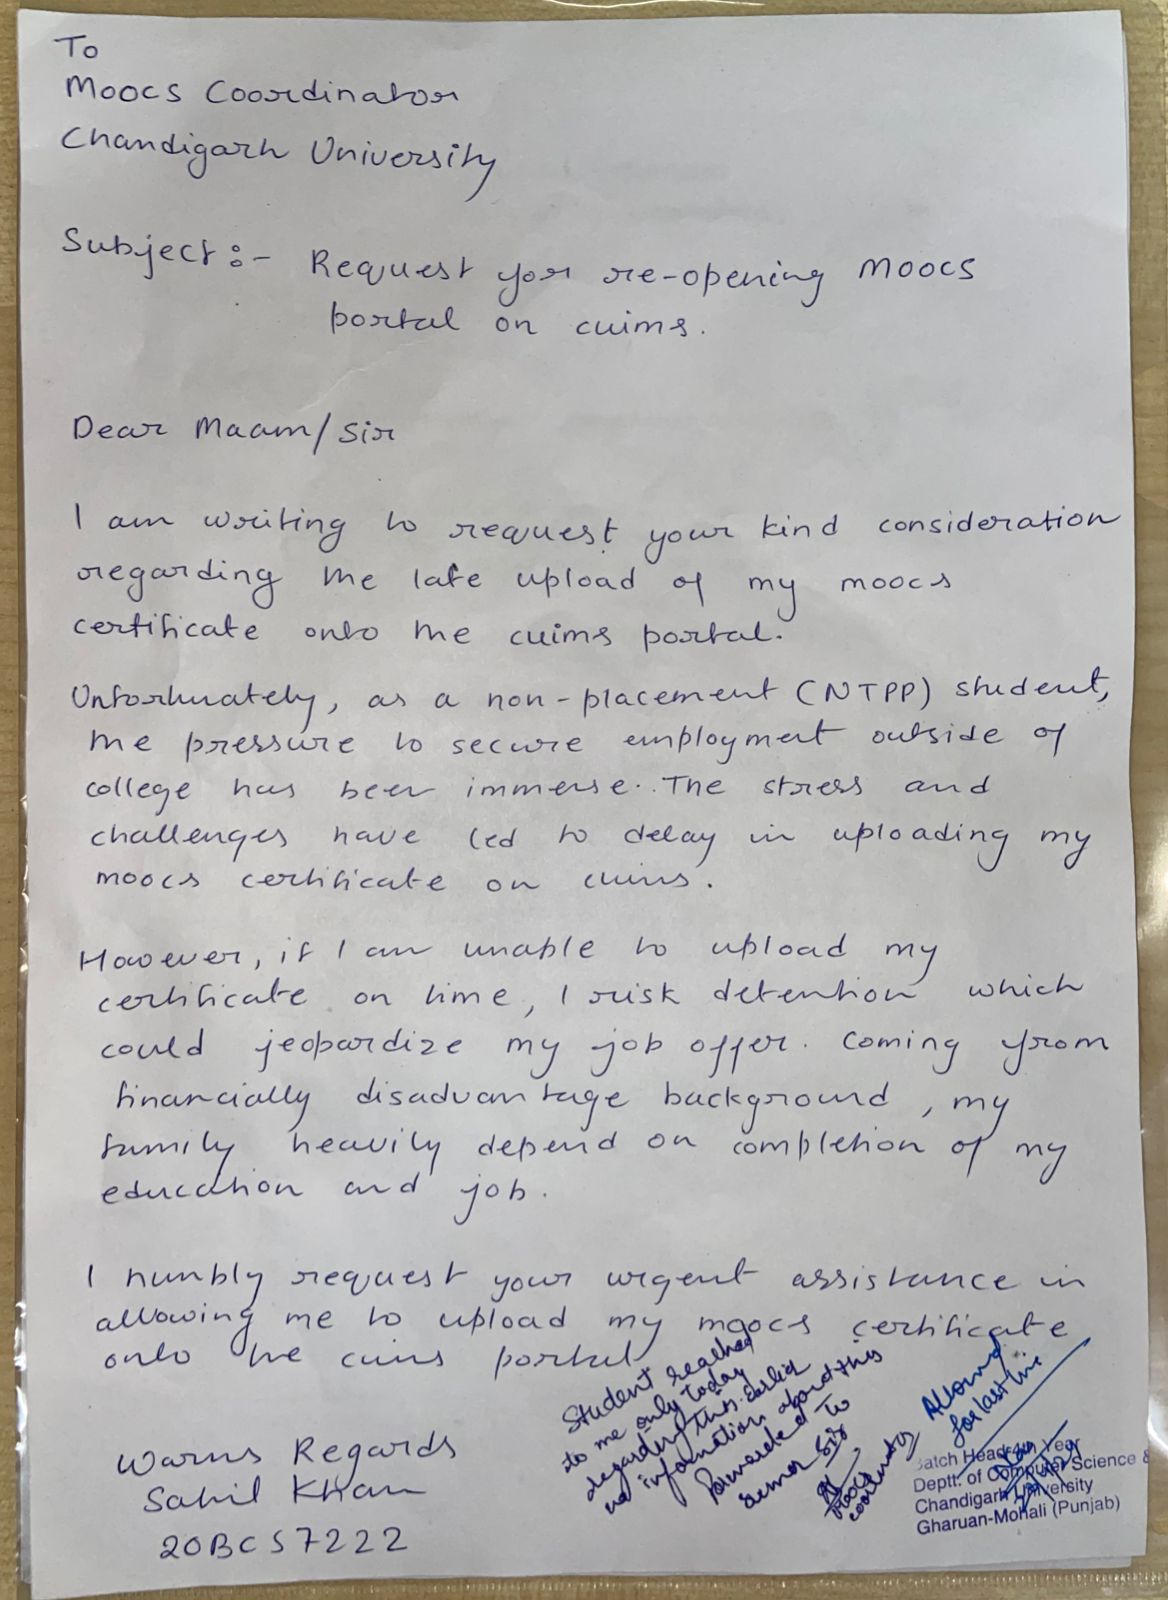 To
Moocs Coordinator
Chandigarh University
Subject:- Request for re-opening moocs
portal on cuims.
Dear Maam/Sir
I am writing to request your kind consideration
regarding the late upload of my moocs
certificate onto the cuims portal.
Unfortunately, as a non-placement (NTPP) student,
the pressure to secure employment outside of
college has been immense. The stress and
challenges have led to delay in uploading my
moocs certificate on cuims.
However, if I am unable to upload my
certificate on time, I risk detention which
could jeopardize my job offer. Coming from
financially disadvantage background, my
family heavily depend on completion of my
education and job.
I humbly request your urgent assistance in
allowing me to upload my moocs certificate
onto the cuims portal
Warms Regards
Sahil Khan
20BCS7222
Student reached
to me only today
regarding this. earlier
no information about this
Forwarded to
senior Sir
Moocs
coordinator
Allowed
for last time
Batch Head Year
Deptt. of Computer Science &
Chandigarh University
Gharuan-Mohali (Punjab)